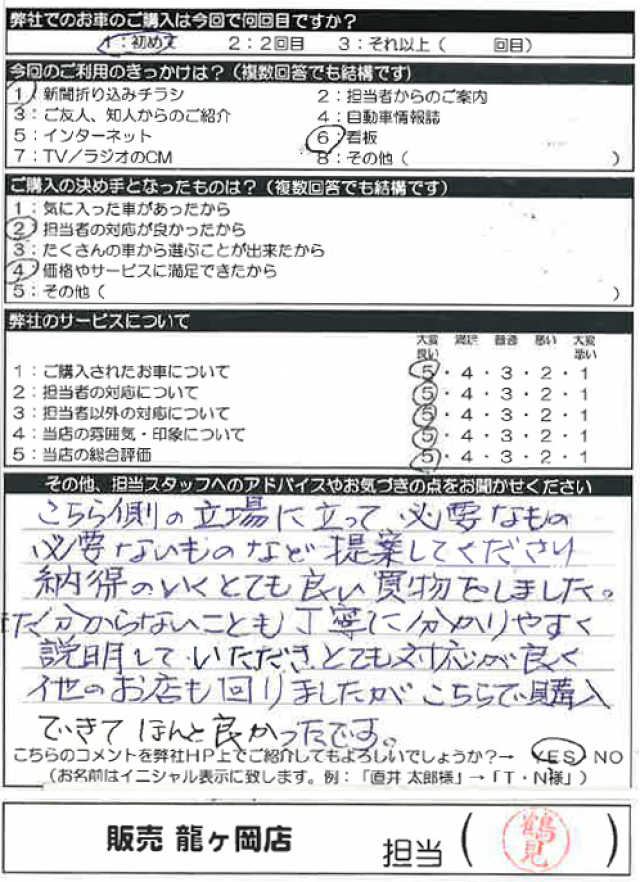 弊社でのお車のご購入は今回で何回目ですか？
1：初めて　2：2回目　3：それ以上（　回目）
今回のご利用のきっかけは？（複数回答でも結構です）
1：新聞折り込みチラシ　2：担当者からのご案内
3：ご友人、知人からのご紹介　4：自動車情報誌
5：インターネット　6：看板
7：TV／ラジオのCM　8：その他（　）
ご購入の決め手となったものは？（複数回答でも結構です）
1：気に入った車があったから
2：担当者の対応が良かったから
3：たくさんの車から選ぶことが出来たから
4：価格やサービスに満足できたから
5：その他（　）
弊社のサービスについて
大変良い　満足　普通　悪い　大変悪い
1：ご購入されたお車について　5・4・3・2・1
2：担当者の対応について　5・4・3・2・1
3：担当者以外の対応について　5・4・3・2・1
4：当店の雰囲気・印象について　5・4・3・2・1
5：当店の総合評価　5・4・3・2・1
その他、担当スタッフへのアドバイスやお気づきの点をお聞かせください
こちら側の立場に立って必要なもの
必要ないものなど提案してくださり
納得のいくとても良い買物をしました。
また分からないことも丁寧に分かりやすく
説明していただきとても対応が良く
他のお店も回りましたがこちらで購入
できてほんと良かったです。
こちらのコメントを弊社HP上でご紹介してもよろしいでしょうか？→　YES／NO
（お名前はイニシャル表示に致します。例：「直井 太郎様」→「T・N様」）
販売 龍ヶ岡店　担当（鶴見）